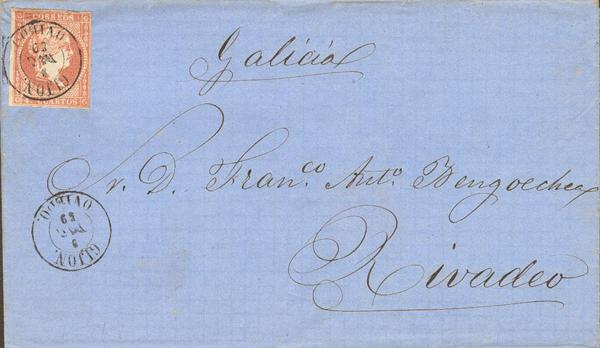 CORREOS
CUARTOS
GIJON.
OVIEDO.
Galicia
Sr. D. Franco. Anto. Bengoechea
Rivadeo
GIJON.
OVIEDO.